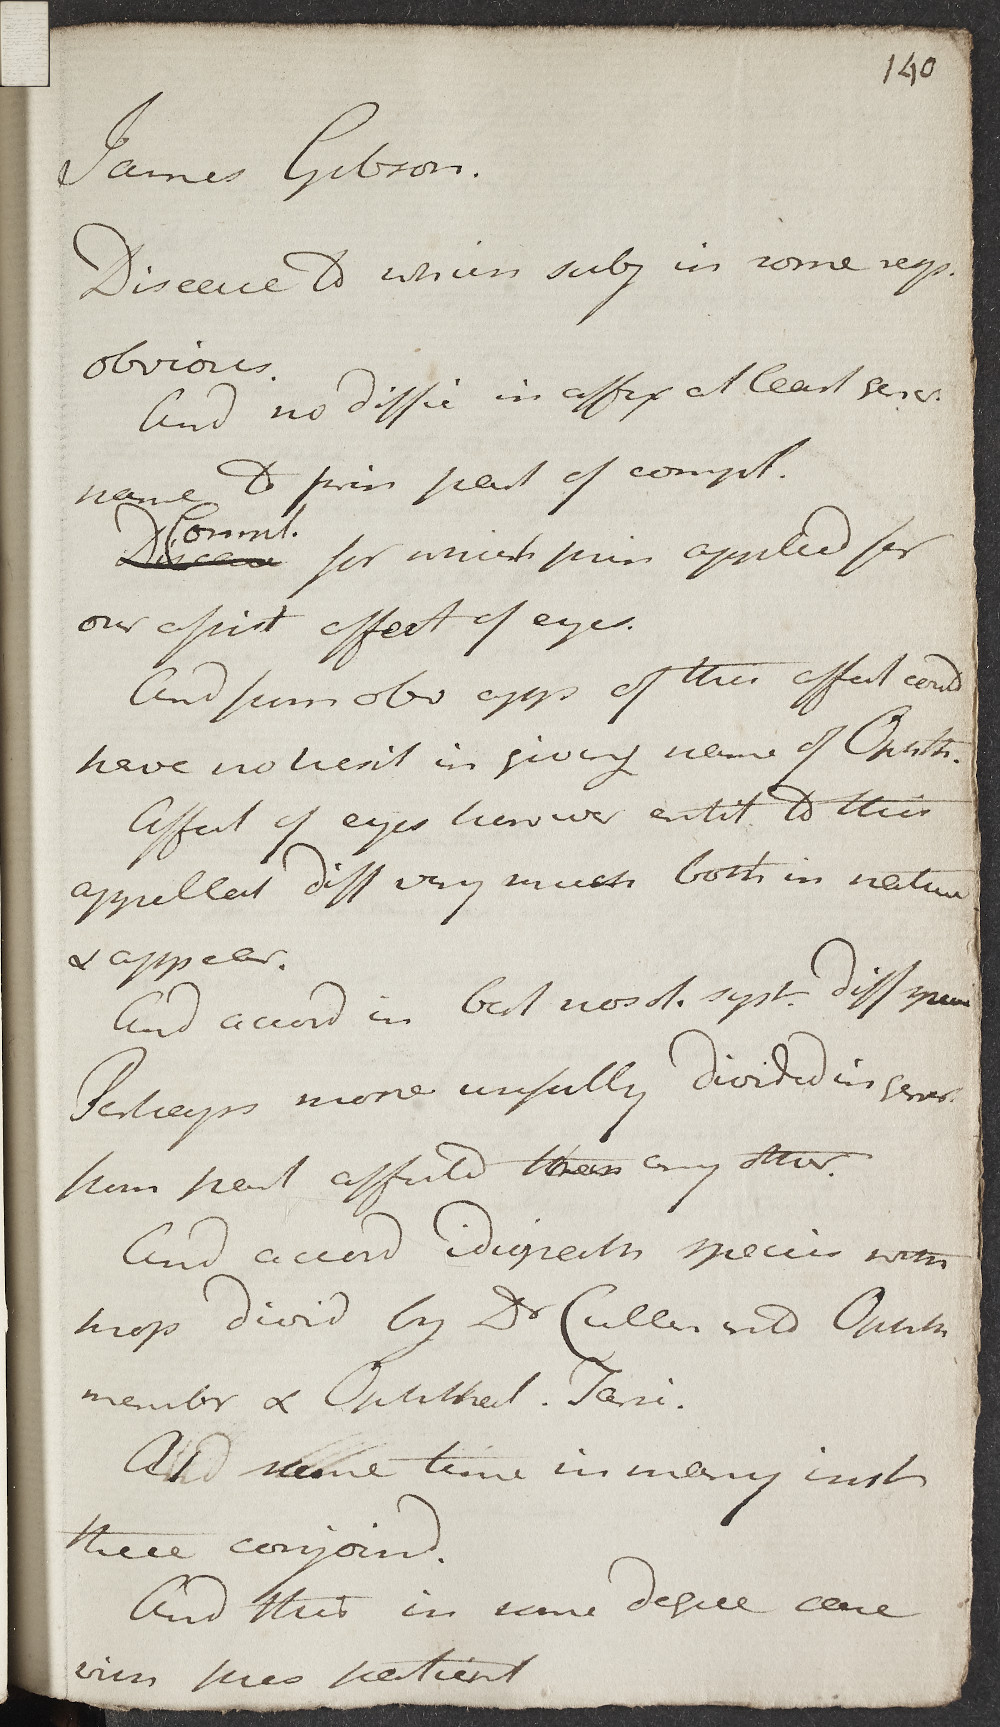 140
James Gibson.
Disease to which subj in some resp.
obvious.
And no diffic in affix at least gener.
name to prin part of compl.
Compl.
Disease for which prin applied for
our assist affect of eyes.
And from obv apps of this affect could
have no hesit in giving name of Ophth.
Affect of eyes however entit to this
appellat diff very much both in nature
& appear.
And accord in best nosol. syst. diff spec
Perhaps more usefully divided in gener.
from part affected than any other.
And accord idiopath species with
prop divid by Dr Cullen into Ophth
membr & Ophthal. Tarsi.
At same time in many inst
these conjoind.
And this in some degree case
with pres patient